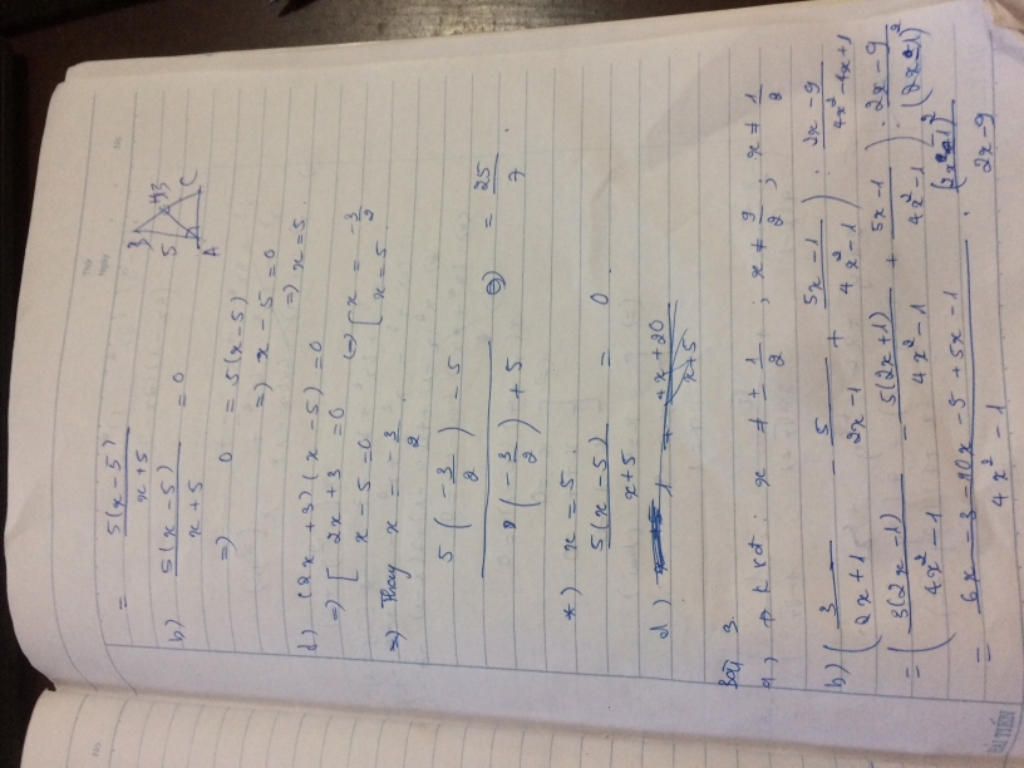 = 5(x-5) / x+5
3
H
B
5
A
C
b) 5(x-5) / x+5 = 0
=) 0 = 5(x-5)
=) x-5 = 0
=) x=5.
(2x+3)(x-5)=0
=) [ 2x+3 = 0
x-5 = 0 (=) [ x = -3/2
x = 5
=) Thay x = -3/2
5(-3/2) - 5 / (-3/2) + 5 = 25/7
*) x = 5
5(x-5) / x+5 = 0
d)
x+20
x+5
Bài 3.
a) đkxđ: x ≠ ± 1/2 ; x ≠ 9/2 ; x ≠ 1/2
b) ( 3 / 2x+1 - 5 / 2x-1 + 5x-1 / 4x²-1 ) : 2x-9 / 4x²-4x+1
= ( 3(2x-1) / 4x²-1 - 5(2x+1) / 4x²-1 + 5x-1 / 4x²-1 ) : 2x-9 / (2x-1)²
= 6x-3-10x-5+5x-1 / 4x²-1 . (2x-1)² / 2x-9
HẢI TIẾN